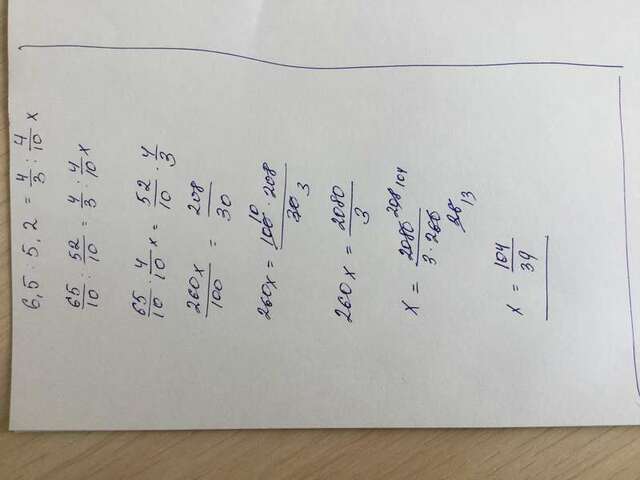 6,5 : 5,2 = 4/3 : 4/10 x
65/10 : 52/10 = 4/3 : 4/10 x
65/10 · 4/10 x = 52/10 · 4/3
260x/100 = 208/30
260x = 100 10 · 208 / 30 3
260x = 2080/3
x = 2080 208 104 / 3 · 260 26 13
x = 104/39